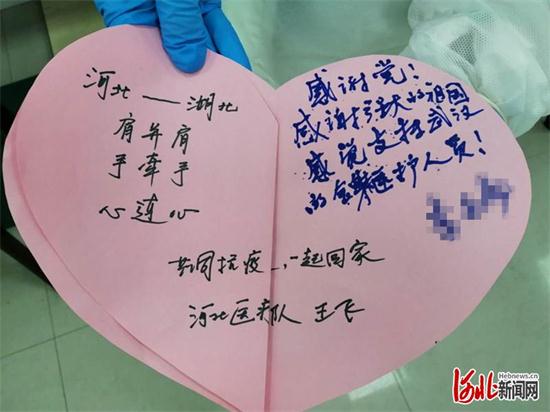 河北——湖北
肩并肩
手牵手
心连心
感谢党!
感谢强大的祖国
感谢支持武汉
的全体医护人员!
共同抗疫,一起回家
河北医疗队 王飞
河北新闻网
Hebnews.cn